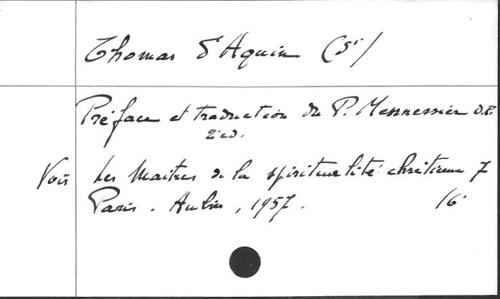 Thomas d'Aquin (St)
Préface et traduction du P. Mennessier O.P.
2 ed.
Voir Les Maitres de la spiritualité chrétienne 7
Paris. Aubier, 1957. 16